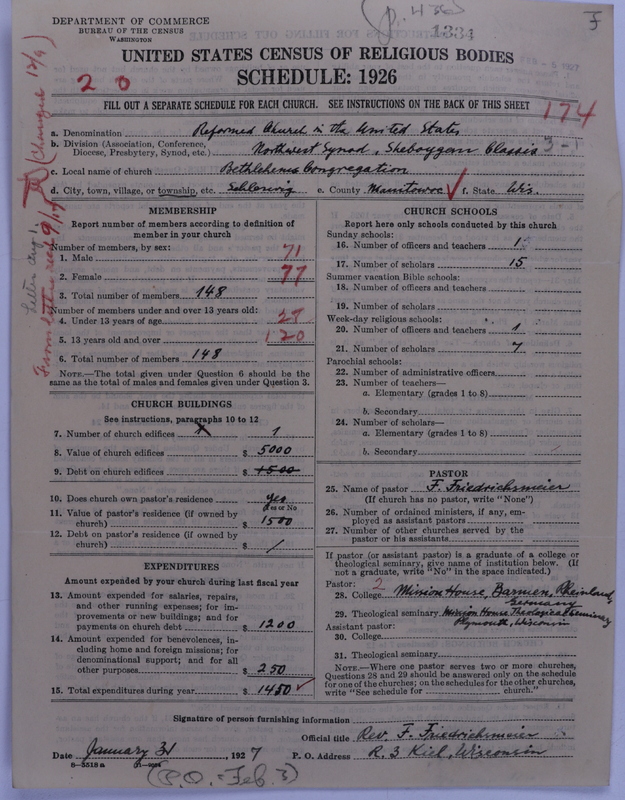 DEPARTMENT OF COMMERCE
BUREAU OF THE CENSUS
WASHINGTON
1334
UNITED STATES CENSUS OF RELIGIOUS BODIES
SCHEDULE: 1926
2 0
FILL OUT A SEPARATE SCHEDULE FOR EACH CHURCH. SEE INSTRUCTIONS ON THE BACK OF THIS SHEET
174
a. Denomination Reformed Church in the United States
b. Division (Association, Conference, Diocese, Presbytery, Synod, etc.) Northwest Synod, Sheboygan Classis 3-1
c. Local name of church Bethlehems Congregation
d. City, town, village, or township, etc. Schleswig e. County Manitowoc f. State Wis.
MEMBERSHIP
Report number of members according to definition of member in your church
Number of members, by sex:
1. Male 71
2. Female 77
3. Total number of members 148
Number of members under and over 13 years old:
4. Under 13 years of age
5. 13 years old and over 120
6. Total number of members 148
NOTE.—The total given under Question 6 should be the same as the total of males and females given under Question 3.
CHURCH BUILDINGS
See instructions, paragraphs 10 to 12
7. Number of church edifices 1
8. Value of church edifices $ 5000
9. Debt on church edifices $ 1500
10. Does church own pastor's residence yes
Yes or No
11. Value of pastor's residence (if owned by church) $ 1500
12. Debt on pastor's residence (if owned by church) $ /
EXPENDITURES
Amount expended by your church during last fiscal year
13. Amount expended for salaries, repairs, and other running expenses; for improvements or new buildings; and for payments on church debt $ 1200
14. Amount expended for benevolences, including home and foreign missions; for denominational support; and for all other purposes $ 250
15. Total expenditures during year $ 1450
CHURCH SCHOOLS
Report here only schools conducted by this church
Sunday schools:
16. Number of officers and teachers 1
17. Number of scholars 15
Summer vacation Bible schools:
18. Number of officers and teachers
19. Number of scholars
Week-day religious schools:
20. Number of officers and teachers 1
21. Number of scholars 7
Parochial schools:
22. Number of administrative officers
23. Number of teachers—
a. Elementary (grades 1 to 8)
b. Secondary
24. Number of scholars—
a. Elementary (grades 1 to 8)
b. Secondary
PASTOR
25. Name of pastor F. Friedrichsmeier
(If church has no pastor, write "None")
26. Number of ordained ministers, if any, employed as assistant pastors
27. Number of other churches served by the pastor or his assistants
If pastor (or assistant pastor) is a graduate of a college or theological seminary, give name of institution below. (If not a graduate, write "No" in the space indicated.)
Pastor: 2
28. College Mission House, Barmen, Rheinland, Germany
29. Theological seminary Mission House Theological Seminary Plymouth, Wisconsin
Assistant pastor:
30. College
31. Theological seminary
NOTE.—Where one pastor serves two or more churches, Questions 28 and 29 should be answered only on the schedule for one of the churches; on the schedules for the other churches, write "See schedule for church."
Signature of person furnishing information
Official title Rev. F. Friedrichsmeier
Date January 31, 1927 P. O. Address R. 3 Kiel, Wisconsin
8-5518a
(P.O. = Feb. 3)